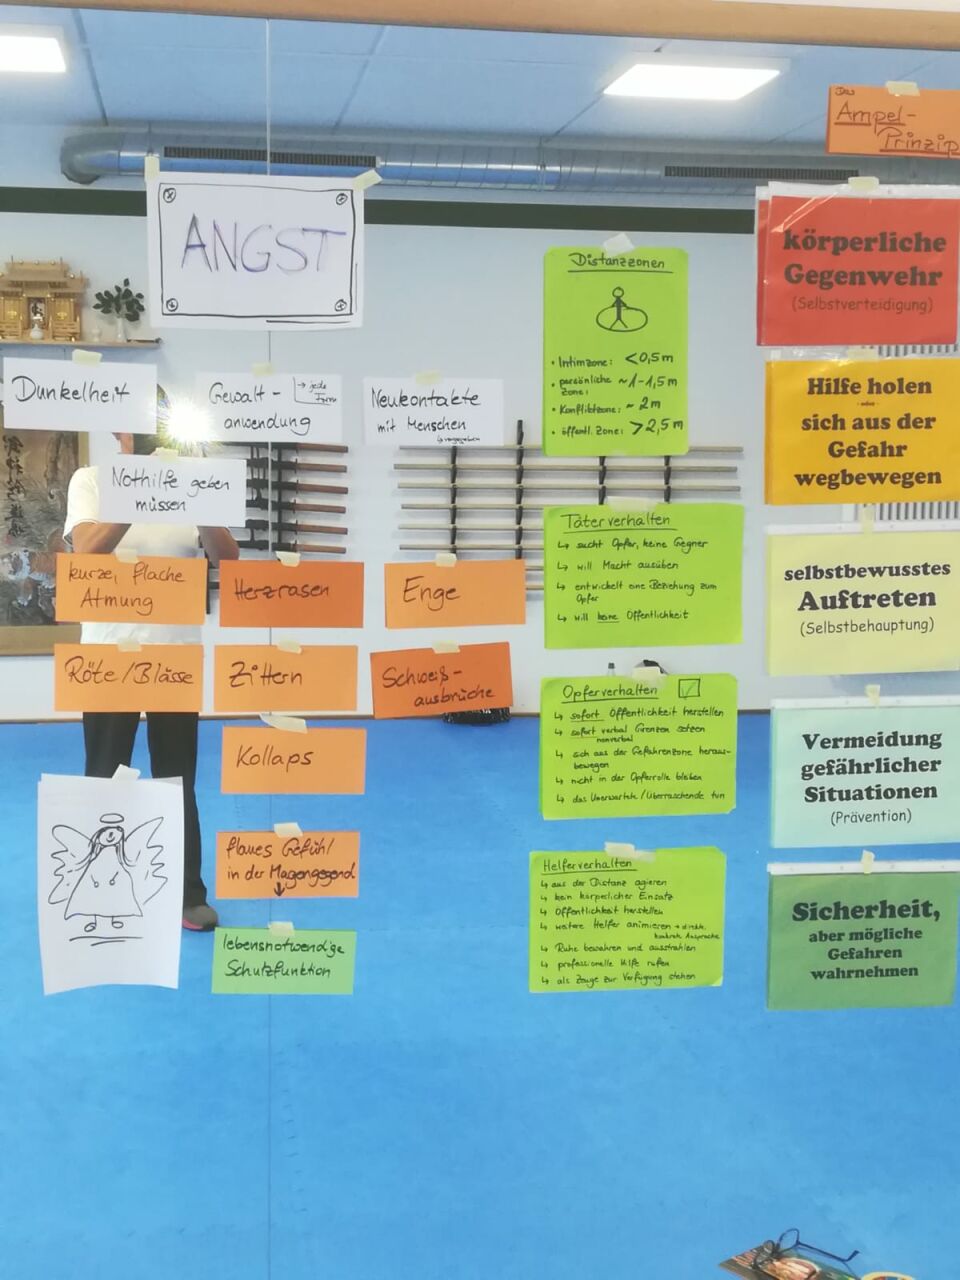 ANGST
Dunkelheit
Gewalt-
anwendung
→ jede
Form
Neukontakte
mit Menschen
↳ vorgegeben
Nothilfe geben
müssen
kurze, flache
Atmung
Herzrasen
Enge
Röte/Blässe
Zittern
Schweiß-
ausbrüche
Kollaps
flaues Gefühl
in der Magengegend
↓
lebensnotwendige
Schutzfunktion
Distanzzonen
• Intimzone: <0,5m
• persönliche ~1-1,5m
zone:
• Konfliktzone: ~ 2m
• öffentl. Zone: >2,5m
Täterverhalten
↳ sucht Opfer, keine Gegner
↳ will Macht ausüben
↳ entwickelt eine Beziehung zum
Opfer
↳ will keine Öffentlichkeit
Opferverhalten
↳ sofort Öffentlichkeit herstellen
↳ sofort verbal Grenzen setzen
nonverbal
↳ sich aus der Gefahrenzone heraus-
bewegen
↳ nicht in der Opferrolle bleiben
↳ das Unerwartete/Überraschende tun
Helferverhalten
↳ aus der Distanz agieren
↳ kein körperlicher Einsatz
↳ Öffentlichkeit herstellen
↳ weitere Helfer animieren → direkte
konkrete Ansprache
↳ Ruhe bewahren und ausstrahlen
↳ professionelle Hilfe rufen
↳ als Zeuge zur Verfügung stehen
Das
Ampel-
Prinzip
körperliche
Gegenwehr
(Selbstverteidigung)
Hilfe holen
- oder -
sich aus der
Gefahr
wegbewegen
selbstbewusstes
Auftreten
(Selbstbehauptung)
Vermeidung
gefährlicher
Situationen
(Prävention)
Sicherheit,
aber mögliche
Gefahren
wahrnehmen